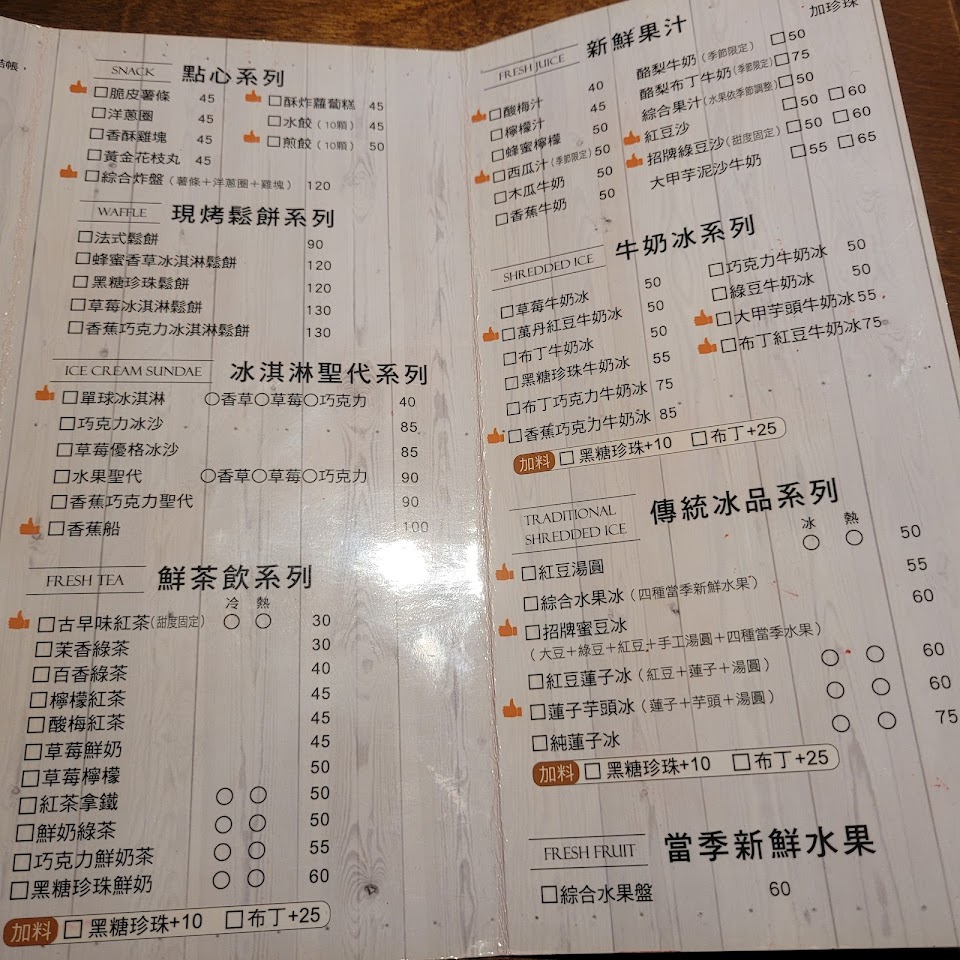 結帳，
SNACK 點心系列
脆皮薯條 45
洋蔥圈 45
香酥雞塊 45
黃金花枝丸 45
綜合炸盤(薯條+洋蔥圈+雞塊) 120
酥炸蘿蔔糕 45
水餃(10顆) 45
煎餃(10顆) 50
WAFFLE 現烤鬆餅系列
法式鬆餅 90
蜂蜜香草冰淇淋鬆餅 120
黑糖珍珠鬆餅 120
草莓冰淇淋鬆餅 130
香蕉巧克力冰淇淋鬆餅 130
ICE CREAM SUNDAE 冰淇淋聖代系列
單球冰淇淋 ○香草○草莓○巧克力 40
巧克力冰沙 85
草莓優格冰沙 85
水果聖代 ○香草○草莓○巧克力 90
香蕉巧克力聖代 90
香蕉船 100
FRESH TEA 鮮茶飲系列
冷 熱
古早味紅茶(甜度固定) 30
茉香綠茶 30
百香綠茶 40
檸檬紅茶 45
酸梅紅茶 45
草莓鮮奶 45
草莓檸檬 50
紅茶拿鐵 50
鮮奶綠茶 50
巧克力鮮奶茶 55
黑糖珍珠鮮奶 60
加料 黑糖珍珠+10 布丁+25
FRESH JUICE 新鮮果汁
加珍珠
酸梅汁 40
檸檬汁 45
蜂蜜檸檬 50
西瓜汁(季節限定) 50
木瓜牛奶 50
香蕉牛奶 50
酪梨牛奶(季節限定) 50
酪梨布丁牛奶(季節限定) 75
綜合果汁(水果依季節調整) 50
紅豆沙 50 60
招牌綠豆沙(甜度固定) 50 60
大甲芋泥沙牛奶 55 65
SHREDDED ICE 牛奶冰系列
草莓牛奶冰 50
萬丹紅豆牛奶冰 50
布丁牛奶冰 50
黑糖珍珠牛奶冰 55
布丁巧克力牛奶冰 75
香蕉巧克力牛奶冰 85
巧克力牛奶冰 50
綠豆牛奶冰 50
大甲芋頭牛奶冰 55
布丁紅豆牛奶冰 75
加料 黑糖珍珠+10 布丁+25
TRADITIONAL SHREDDED ICE 傳統冰品系列
冰 熱
紅豆湯圓 50
綜合水果冰(四種當季新鮮水果) 55
招牌蜜豆冰 60
(大豆+綠豆+紅豆+手工湯圓+四種當季水果)
紅豆蓮子冰(紅豆+蓮子+湯圓) 60
蓮子芋頭冰(蓮子+芋頭+湯圓) 60
純蓮子冰 75
加料 黑糖珍珠+10 布丁+25
FRESH FRUIT 當季新鮮水果
綜合水果盤 60